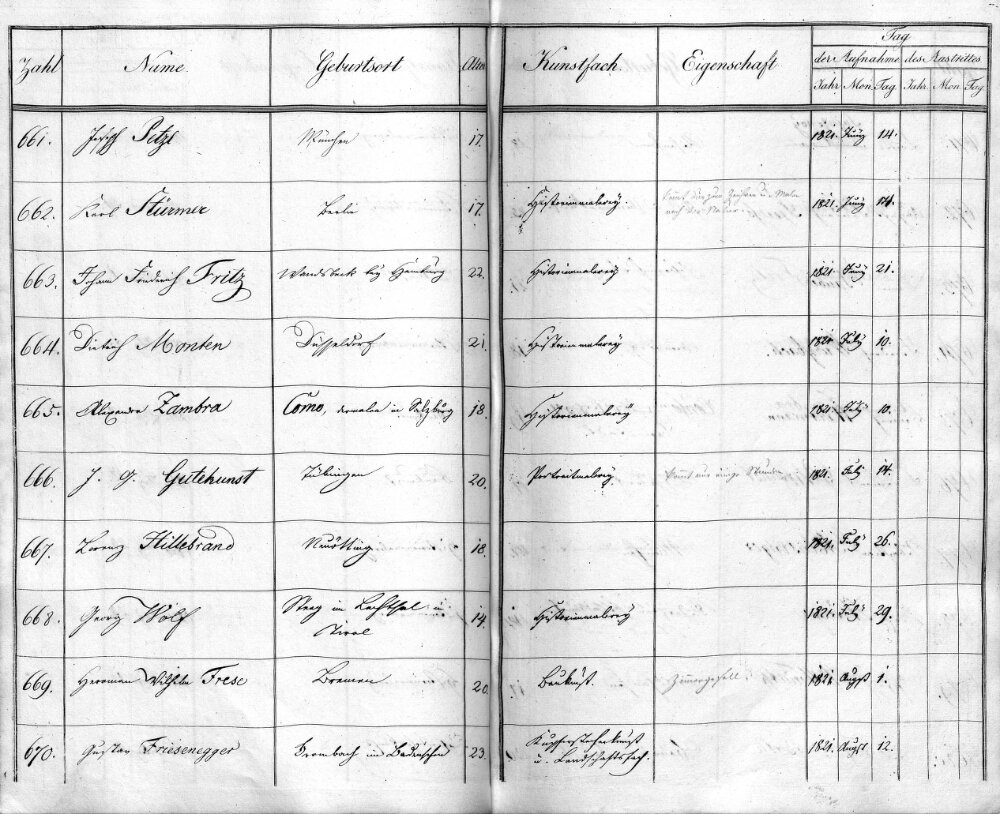 Zahl Name. Geburtsort Alter Kunstfach. Eigenschaft Tag
der Aufnahme des Austrittes
Jahr Mon. Tag. Jahr. Mon. Tag
661. Joseph Petzl München 17. 1821. Juny 14.
662. Karl Stürmer Berlin 17. Historienmalerey 1821. Juny 14.
663. Johann Friederich Fritz Wandsbeck bey Hamburg 22. Historienmalerey 1821. Juny 21.
664. Dietrich Monten Düsseldorf 21. Historienmalerey 1821 July 10.
665. Alexander Zambra Como, dermalen in Salzburg 18. Historienmalerey 1821 July 10.
666. J. G. Gutekunst Tübingen 20. Portraitmalerey 1821. July 14.
667. Lorenz Hillebrand Neuötting 18. 1821. July 26.
668. Georg Wolf Steeg im Lechthal in
Tirol 14. Historienmalerey 1821. July 29.
669. Herrman Wilhelm Frese Bremen 20. Baukunst. Zimmergesell 1821 Augst 1.
670. Gustav Friesenegger Brombach im Badenschen 23. Kupferstecherkunst
u. Landschaftsfach. 1821. Augst 12.